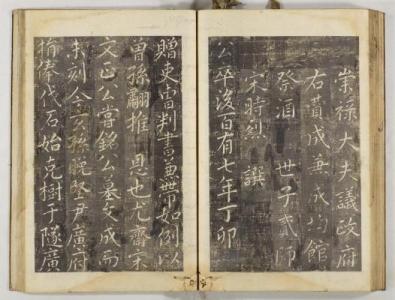 崇祿大夫議政府
右贊成兼成均館
祭酒 世子貳師
宋時烈 譔
公卒後百有七年丁卯
贈吏曹判書兼帶如例以
曾孫翩推 恩也尤齋宋
文正公嘗銘公墓文成而
未刻今玄孫晩堅尹廣府
捐俸伐石始克樹于隧廣